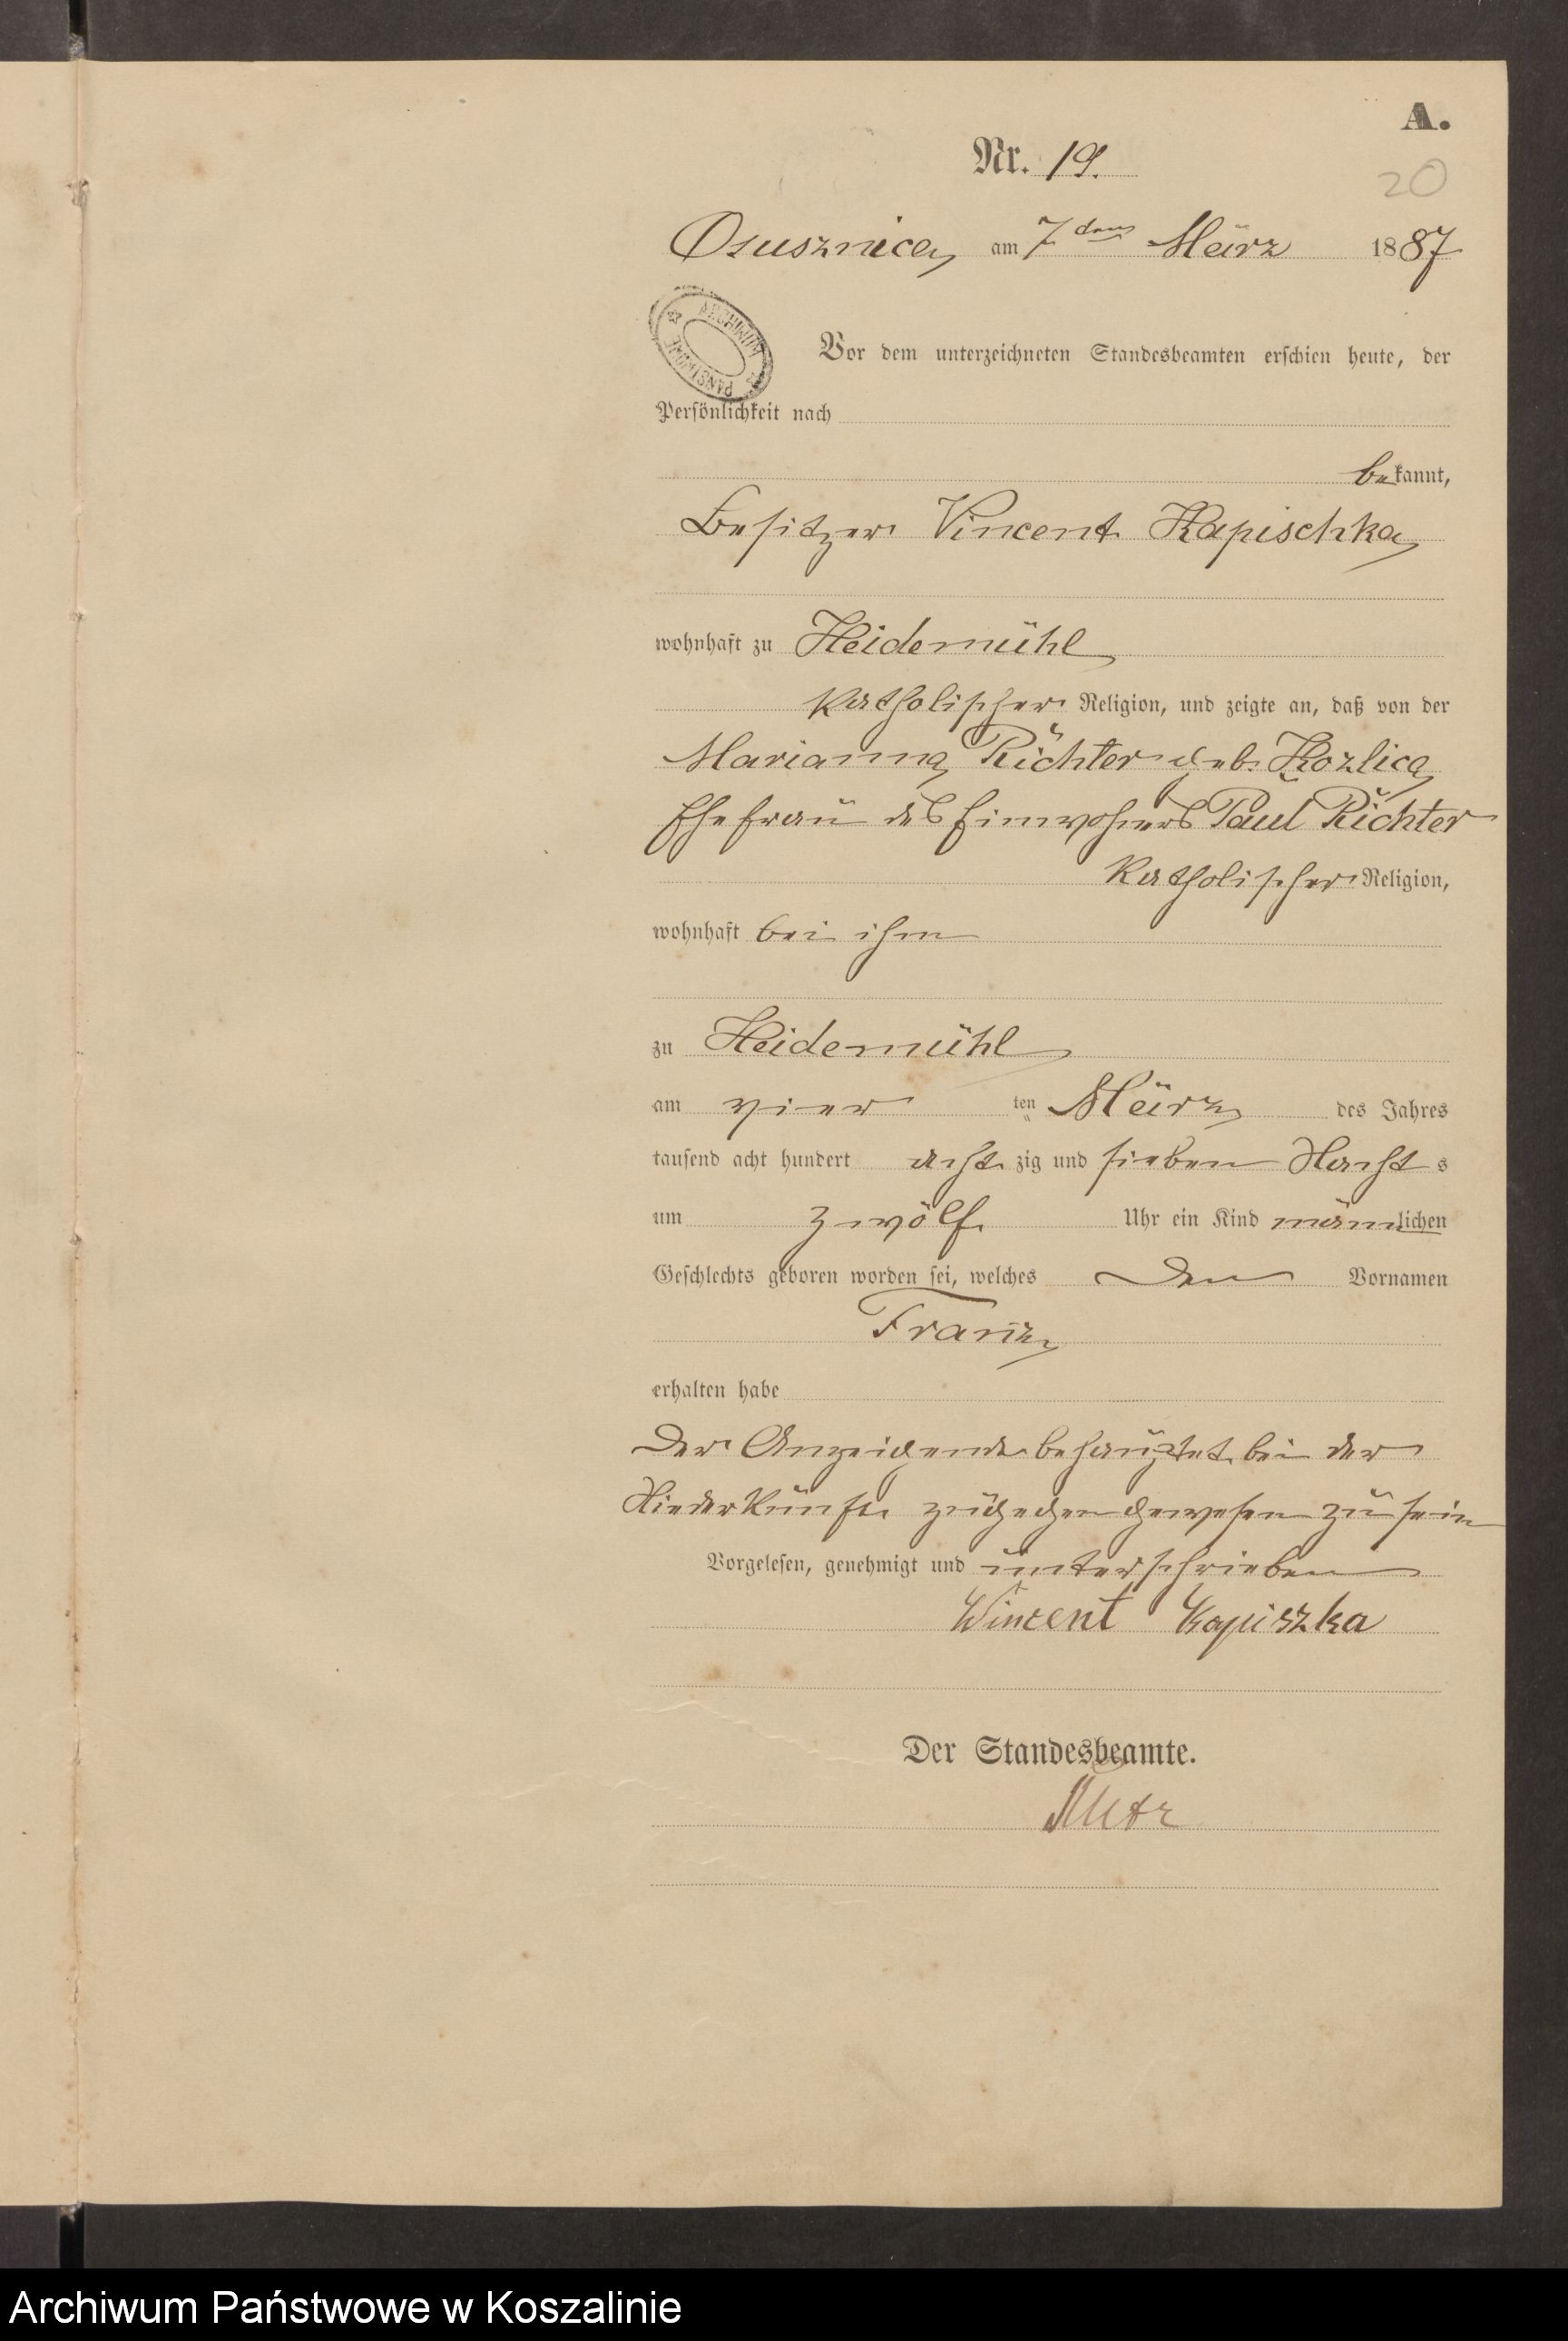 A.
Nr. 19.
20
Osusznica, am 7 den März 1887
ARCHIWUM PAŃSTWOWE
Vor dem unterzeichneten Standesbeamten erschien heute, der
Persönlichkeit nach
bekannt,
Besitzer Vincent Kapischka
wohnhaft zu Heidemühl
katholischer Religion, und zeigte an, daß von der
Marianna Richter geb. Kozlica
Ehefrau des Einwohners Paul Richter
katholischer Religion,
wohnhaft bei ihm
zu Heidemühl
am vier ten März des Jahres
tausend acht hundert acht zig und sieben Nacht s
um zwölf Uhr ein Kind männlichen
Geschlechts geboren worden sei, welches den Vornamen
Franz
erhalten habe
Der Anzeigende behauptet bei der
Niederkunft zugegen gewesen zu sein
Vorgelesen, genehmigt und unterschrieben
Wincent Kapiszka
Der Standesbeamte.
Archiwum Państwowe w Koszalinie